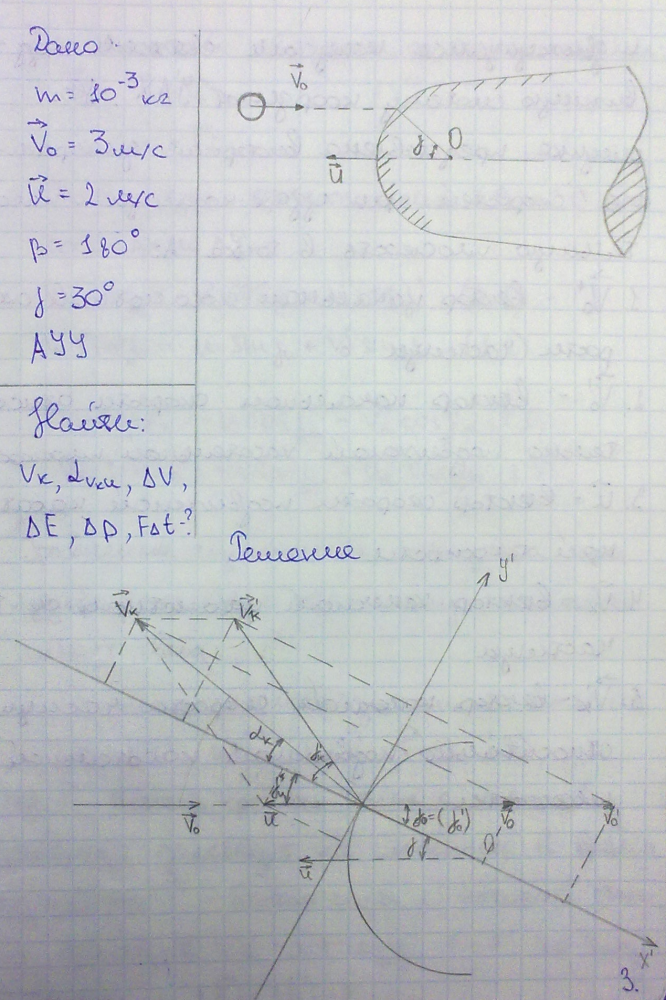 Дано:
m = 10⁻³ кг
V⃗₀ = 3 м/с
u⃗ = 2 м/с
β = 180°
γ = 30°
АУУ
Найти:
Vк, αVкu, ΔV,
ΔE, Δp, FΔt-?
V⃗₀
u⃗
γ
O
Решение
y'
V⃗к
V⃗к'
αк
γк'
γu
V⃗₀
u⃗
γ₀=(γ₀')
V⃗₀
V⃗₀'
u⃗
γ
O'
x'
3.